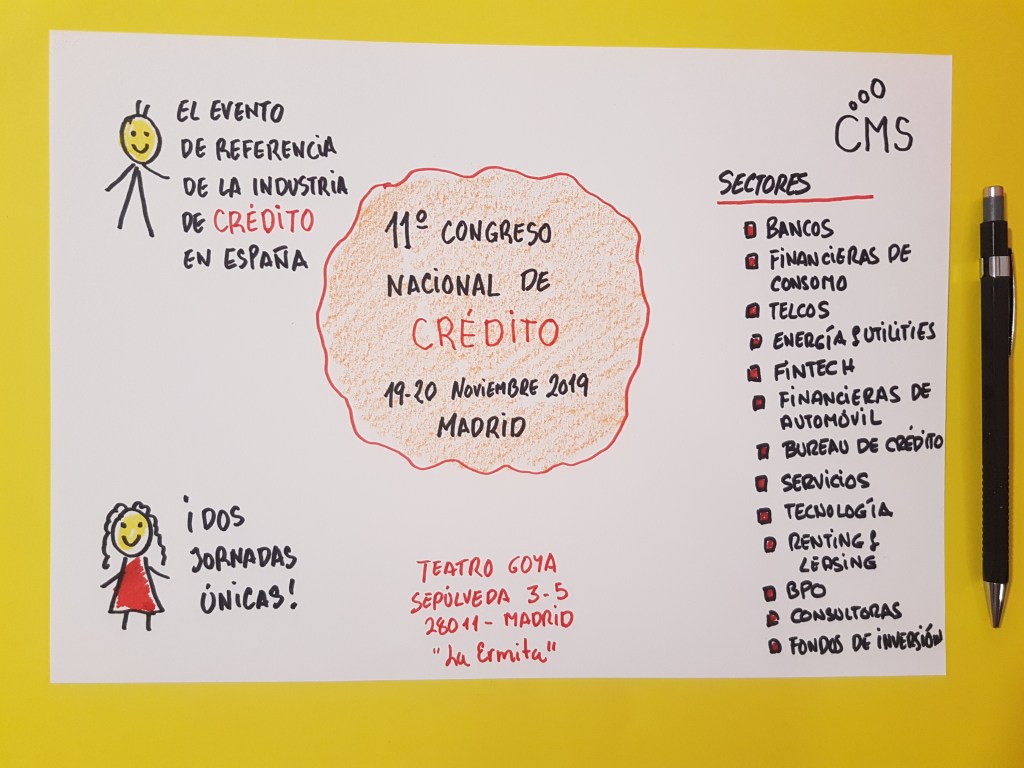 EL EVENTO
DE REFERENCIA
DE LA INDUSTRIA
DE CRÉDITO
EN ESPAÑA
11º CONGRESO
NACIONAL DE
CRÉDITO
19-20 NOVIEMBRE 2019
MADRID
¡DOS
JORNADAS
ÚNICAS!
TEATRO GOYA
SEPÚLVEDA 3-5
28011 - MADRID
"La Ermita"
CMS
SECTORES
BANCOS
FINANCIERAS DE
CONSOMO
TELCOS
ENERGÍA & UTILITIES
FINTECH
FINANCIERAS DE
AUTOMÓVIL
BUREAU DE CRÉDITO
SERVICIOS
TECNOLOGÍA
RENTING &
LEASING
BPO
CONSULTORAS
FONDOS DE INVERSIÓN